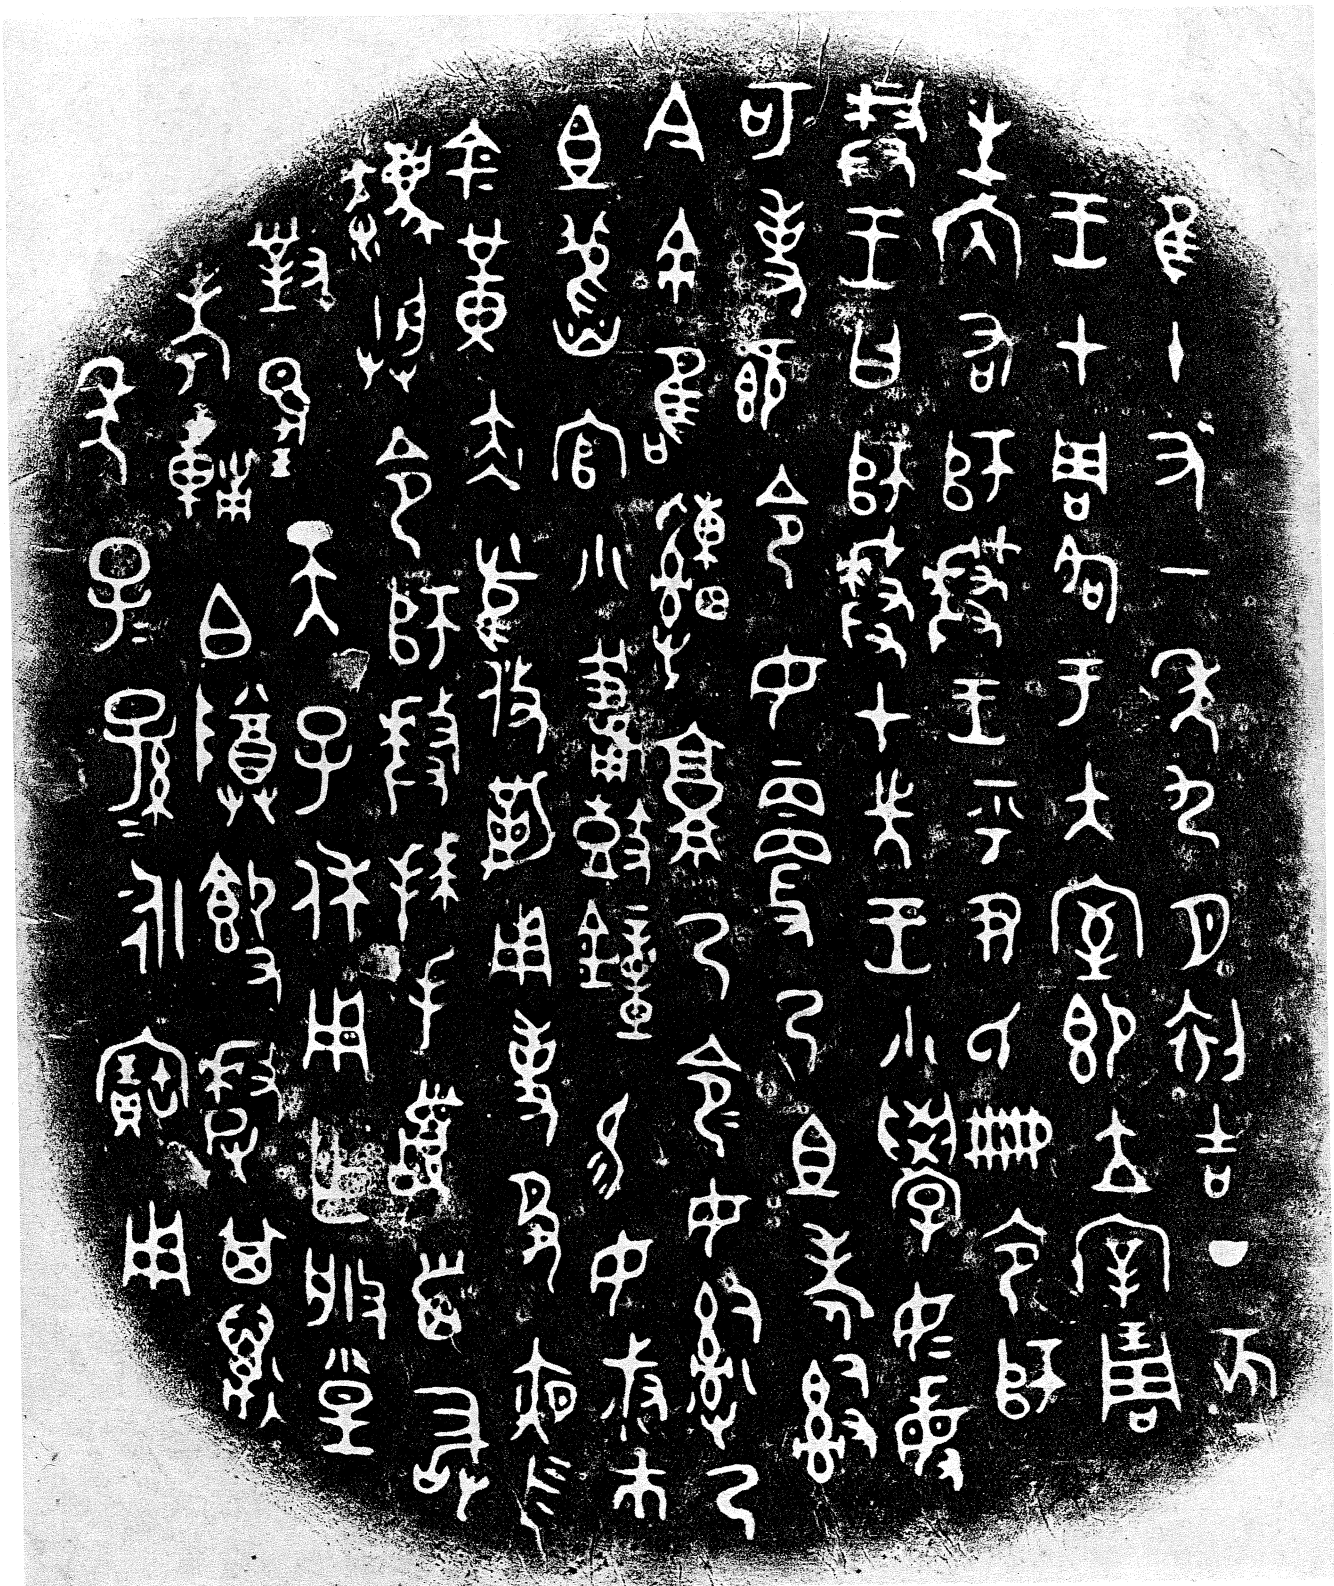 隹十又一年九月初吉丁亥
王才周各于大室即立宰琱
生內右師𠩺王乎尹氏冊令師
𠩺王曰師𠩺才先王小學女女敏
可吏既令女更乃且考𤔲
今余唯𤕌𩫏乃令令女𤔲乃
且舊官小輔眔鼓鐘易女叔巿
金黃赤舄攸勒用事敬夙夜勿
灋朕令師𠩺拜手𩒨首敢
對揚天子休用乍朕皇
考輔白尊𣪘𠩺其萬
年子子孫孫永寶用